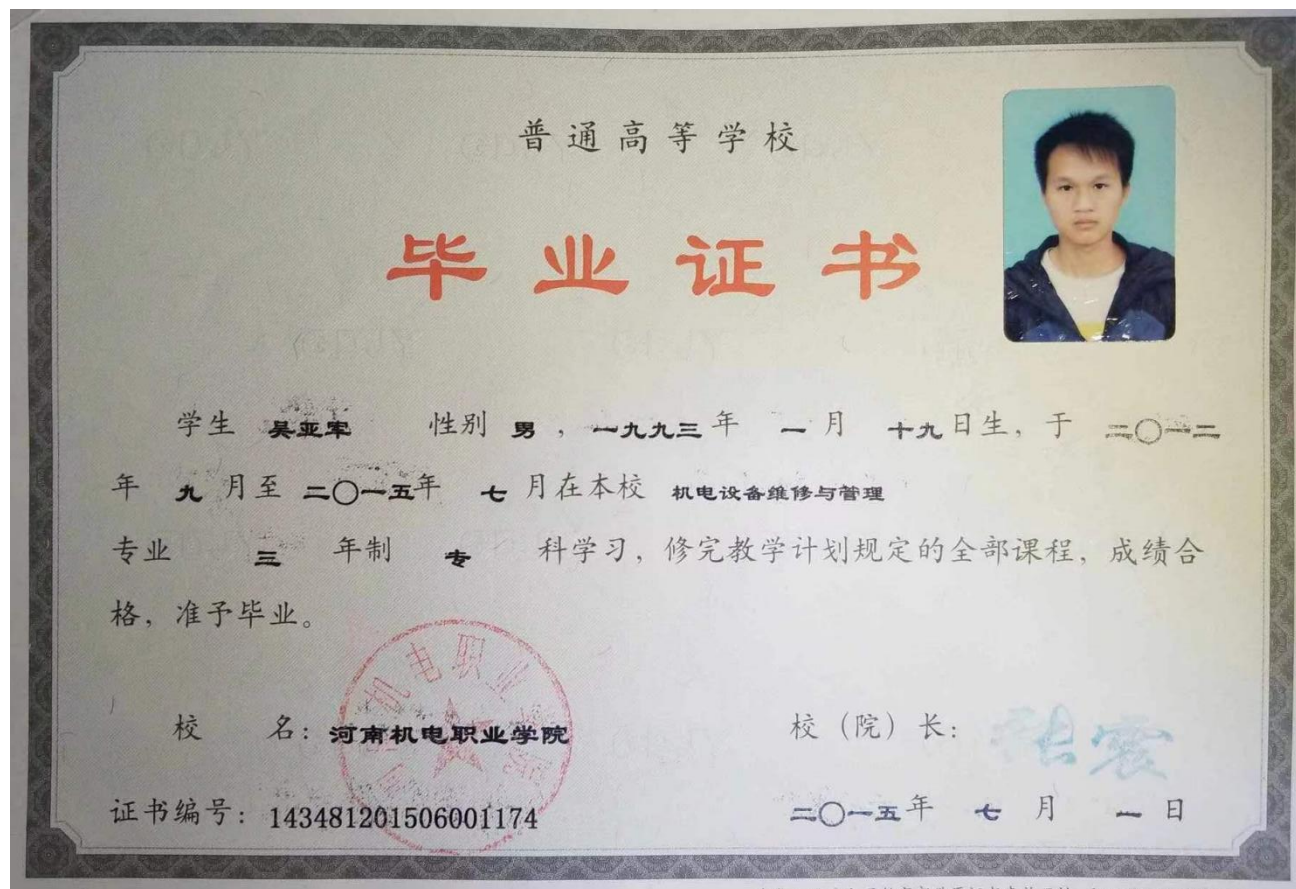 普通高等学校
毕业证书
学生 吴亚军 性别 男 ，一九九三年 一月 十九日生，于 二〇一二
年 九 月至 二〇一五年 七 月在本校 机电设备维修与管理
专业 三 年制 专 科学习，修完教学计划规定的全部课程，成绩合
格，准予毕业。
校 名：河南机电职业学院
校（院）长：
证书编号：143481201506001174
二〇一五年 七 月 一 日